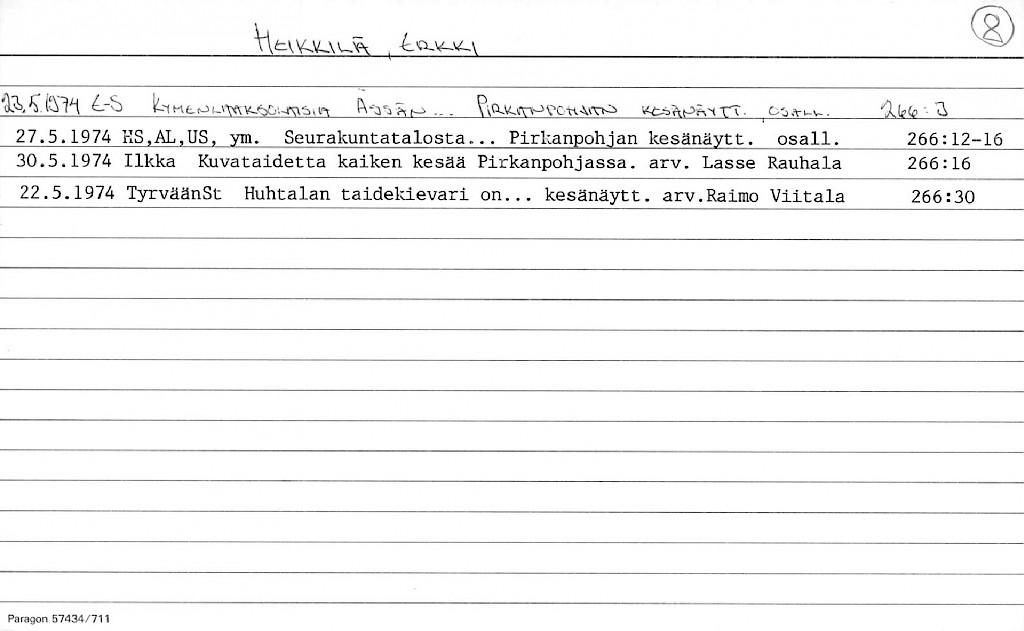 HEIKKILÄ, ERKKI
8
23.5.1974 E-S KYMENLAAKSOLAISIA ÄSSÄN... PIRKANPOHJAN KESÄNÄYTT. OSALL. 266:3
27.5.1974 HS,AL,US, ym. Seurakuntatalosta... Pirkanpohjan kesänäytt. osall. 266:12-16
30.5.1974 Ilkka Kuvataidetta kaiken kesää Pirkanpohjassa. arv. Lasse Rauhala 266:16
22.5.1974 TyrväänSt Huhtalan taidekievari on... kesänäytt. arv.Raimo Viitala 266:30
Paragon 57434/711